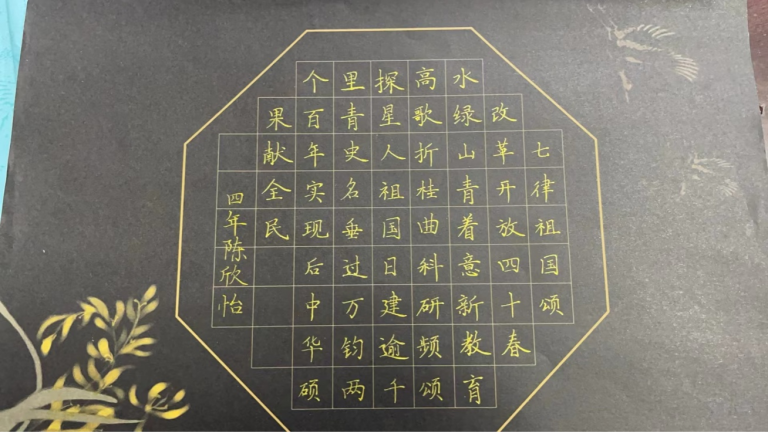 七律祖国颂
改革开放四十春
水绿山青着意新教育
高歌折桂曲科研频颂
探星人祖国日建逾千
里青史名垂过万钧两
个百年实现后中华硕
果献全民
四年陈欣怡